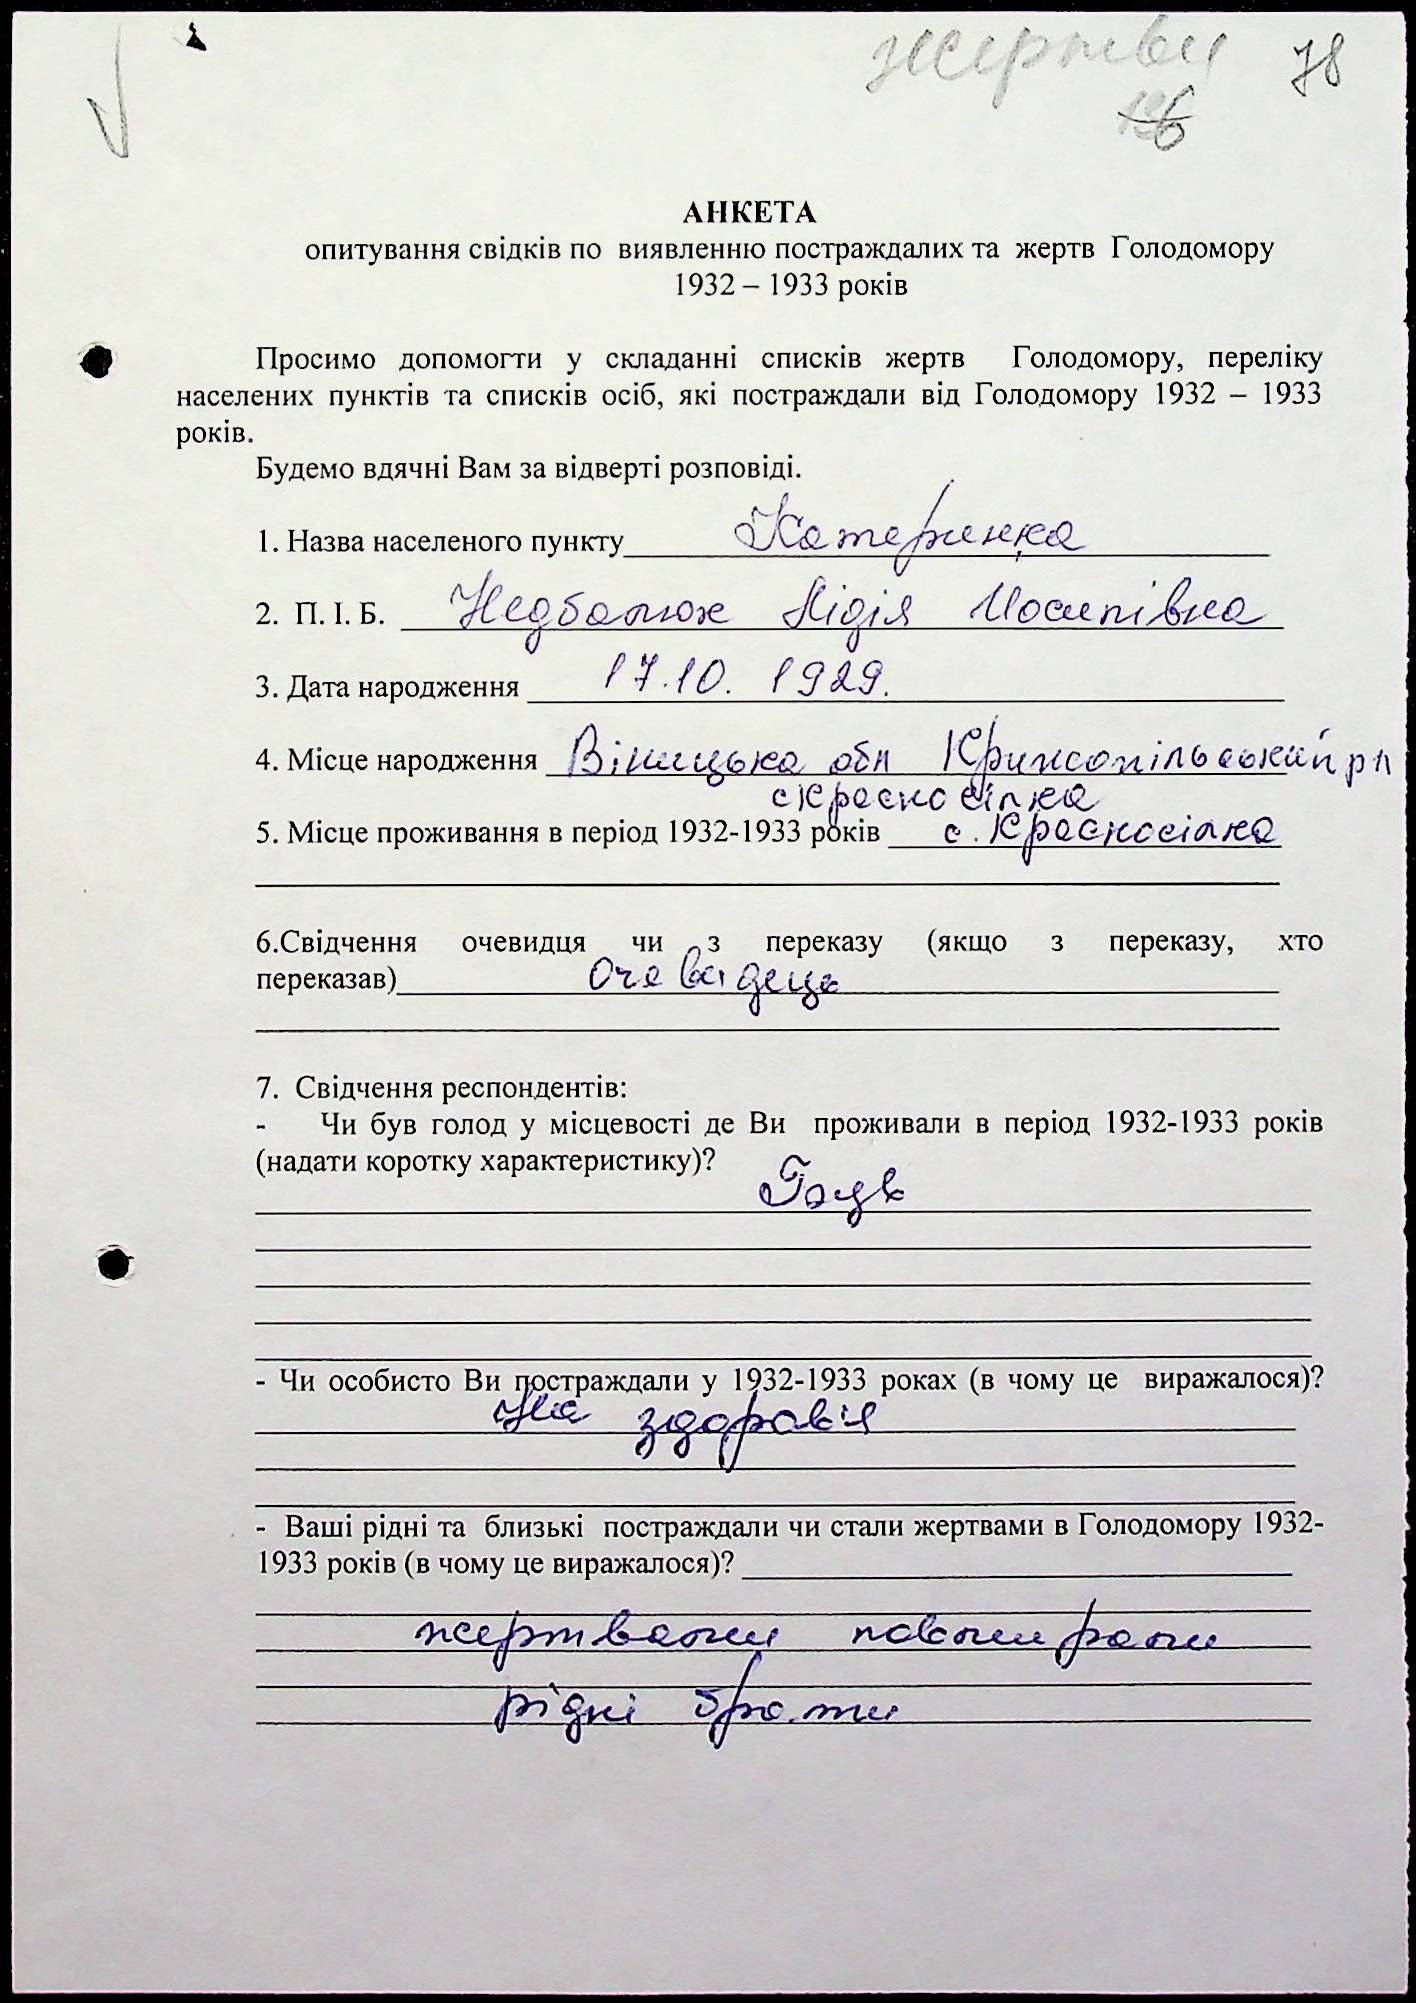 жертви 78
АНКЕТА
опитування свідків по виявленню постраждалих та жертв Голодомору
1932 – 1933 років
Просимо допомогти у складанні списків жертв Голодомору, переліку
населених пунктів та списків осіб, які постраждали від Голодомору 1932 – 1933
років.
Будемо вдячні Вам за відверті розповіді.
1. Назва населеного пункту Катеринка
2. П. І. Б. Недбалюк Лідія Йосипівна
3. Дата народження 17.10. 1929.
4. Місце народження Вініцька обл Крижопільський рн
с Красносілка
5. Місце проживання в період 1932-1933 років с. Красносілка
6.Свідчення очевидця чи з переказу (якщо з переказу, хто
переказав) Очевидець
7. Свідчення респондентів:
- Чи був голод у місцевості де Ви проживали в період 1932-1933 років
(надати коротку характеристику)?
- Чи особисто Ви постраждали у 1932-1933 роках (в чому це виражалося)?
На здоров'я
- Ваші рідні та близькі постраждали чи стали жертвами в Голодомору 1932-
1933 років (в чому це виражалося)?
жертвами повмирали
рідні брати